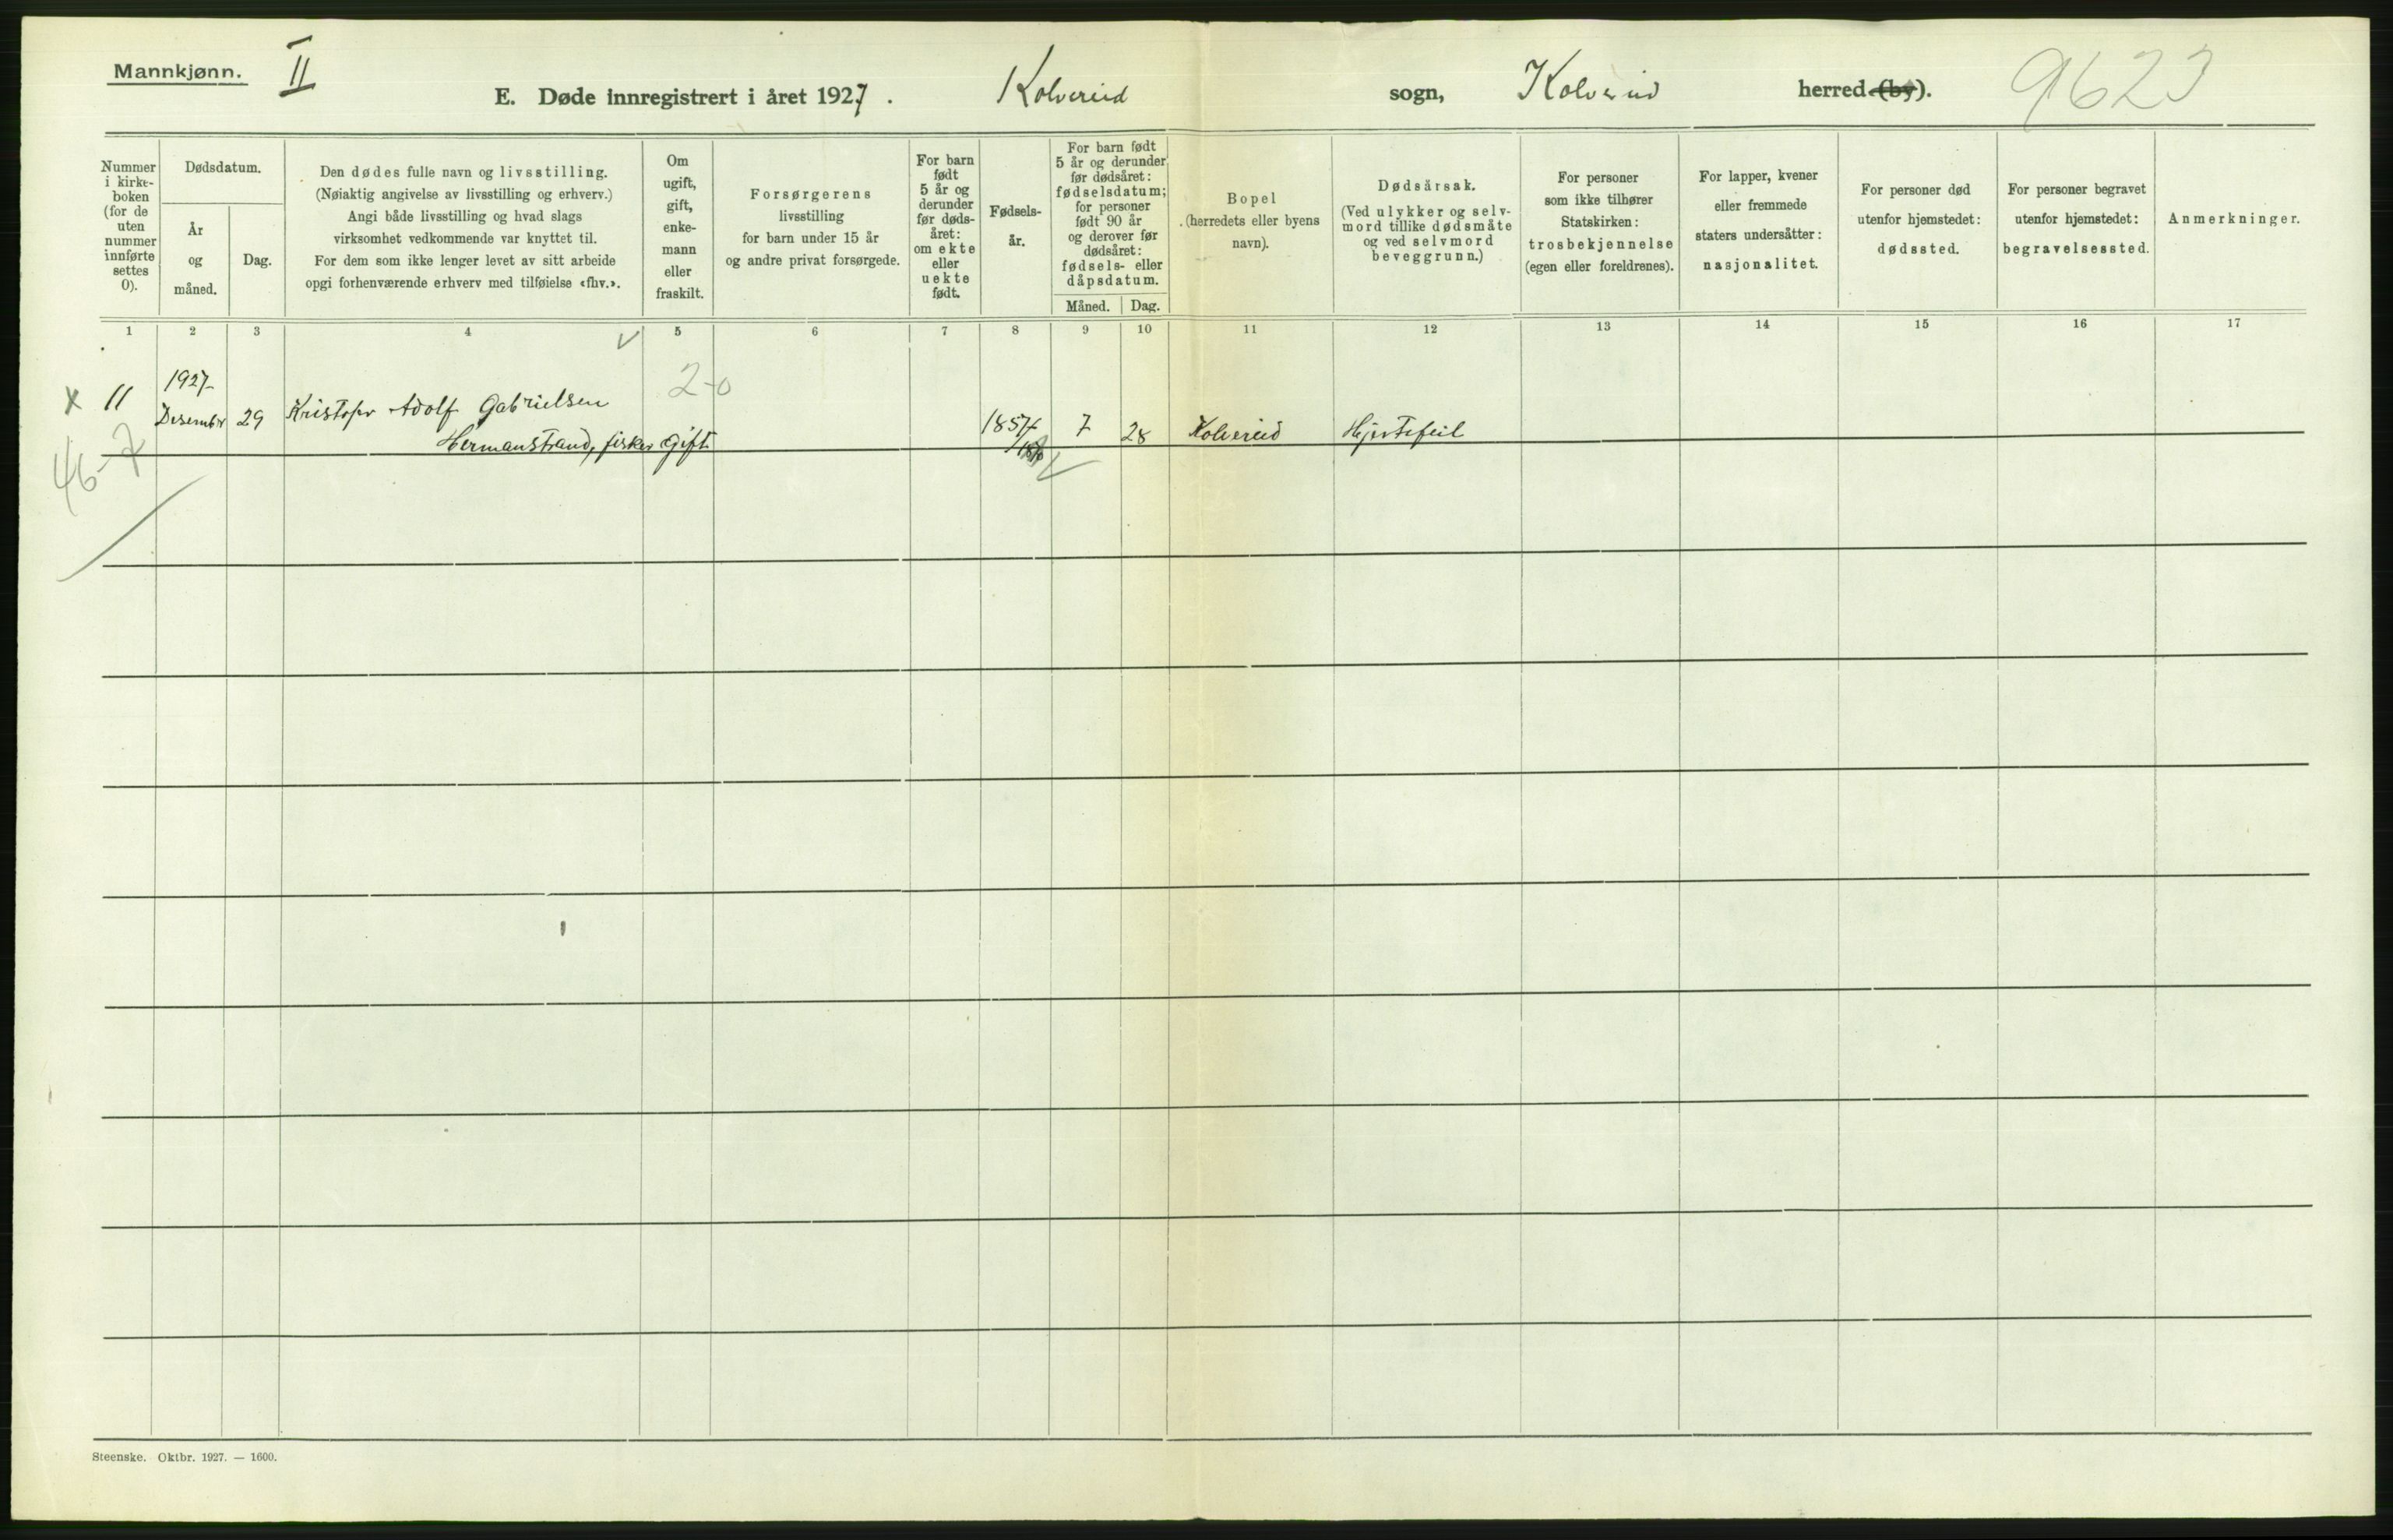 Mannkjønn. II
E. Døde innregistrert i året 1927. Kolvereid sogn, Kolvereid herred (by). 9623
Nummer i kirke-boken (for de uten nummer innførte settes 0).
Dødsdatum.
År og måned.
Dag.
Den dødes fulle navn og livsstilling.
(Nøiaktig angivelse av livsstilling og erhverv.)
Angi både livsstilling og hvad slags
virksomhet vedkommende var knyttet til.
For dem som ikke lenger levet av sitt arbeide
opgi forhenværende erhverv med tilføielse «fhv.».
Om ugift, gift, enke-mann eller fraskilt.
Forsørgerens
livsstilling
for barn under 15 år
og andre privat forsørgede.
For barn født 5 år og derunder før døds-året: om ekte eller uekte født.
Fødsels-år.
For barn født 5 år og derunder før dødsåret: fødselsdatum; for personer født 90 år og derover før dødsåret: fødsels- eller dåpsdatum.
Måned. Dag.
Bopel
(herredets eller byens
navn).
Dødsårsak.
(Ved ulykker og selv-
mord tillike dødsmåte
og ved selvmord
beveggrunn.)
For personer
som ikke tilhører
Statskirken:
trosbekjennelse
(egen eller foreldrenes).
For lapper, kvener
eller fremmede
staters undersåtter:
nasjonalitet.
For personer død
utenfor hjemstedet:
dødssted.
For personer begravet
utenfor hjemstedet:
begravelsessted.
Anmerkninger.
1 2 3 4 5 6 7 8 9 10 11 12 13 14 15 16 17
1927
2-0
x 11 Desember 29 Kristofer Adolf Gabrielsen
Hermanstrand, fisker Gift 1857 7 28 Kolvereid Hjertefeil
46-7
Steenske. Oktbr. 1927. — 1600.